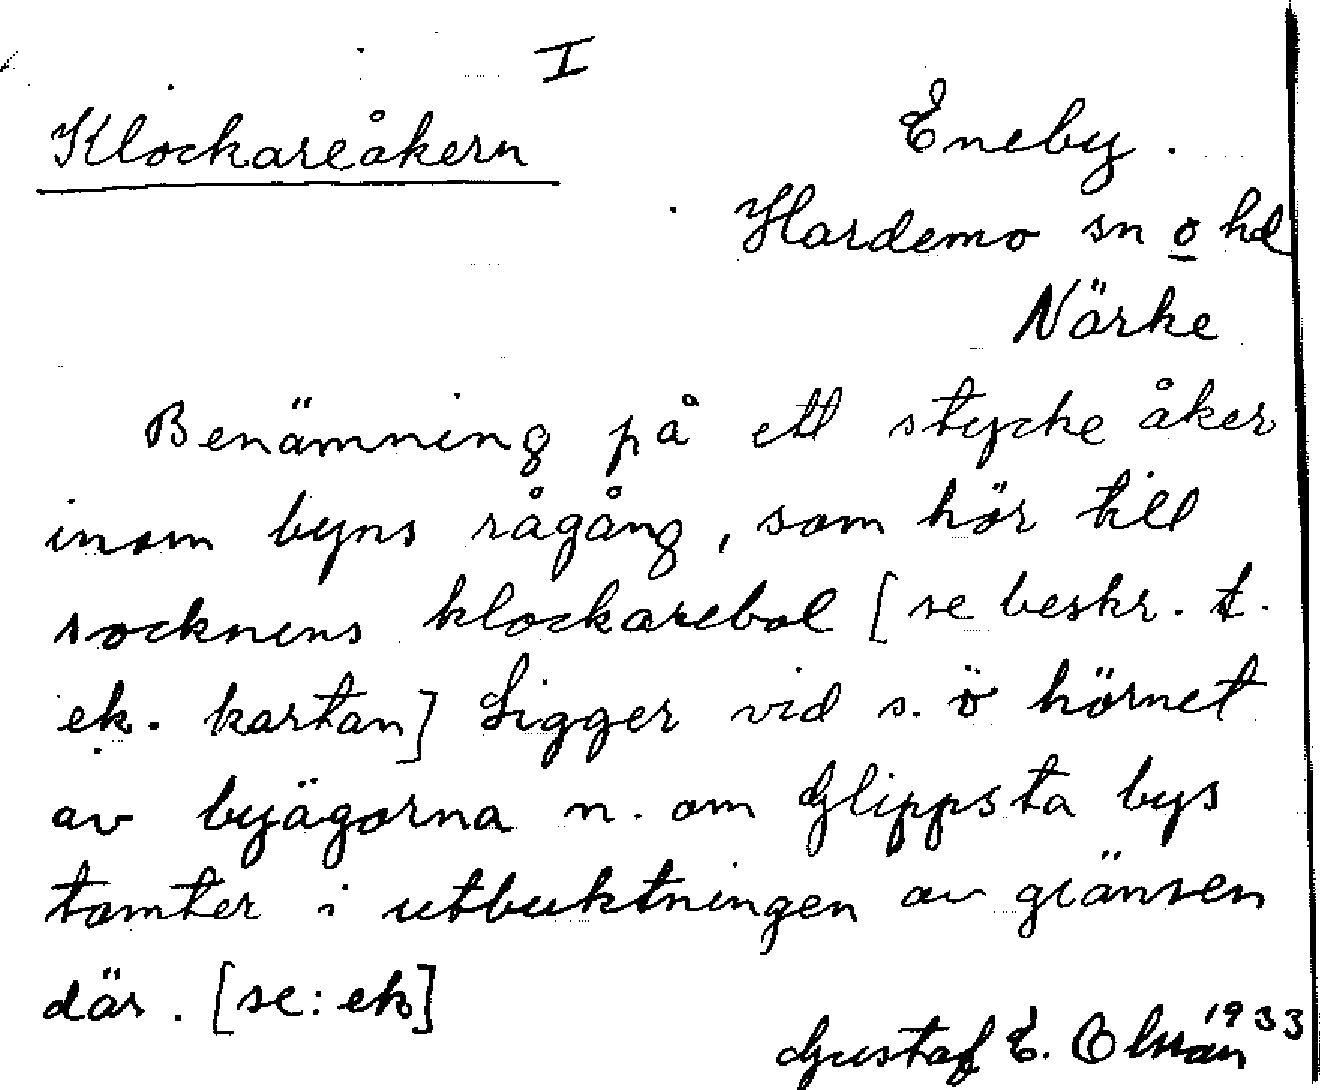 I
Klockareåkern
Eneby.
Hardemo sn o hd
Närke
Benämning på ett stycke åker
inom byns rågång, som hör till
socknens klockarebol [se beskr. t.
ek. kartan] Ligger vid s. ö hörnet
av byägorna n. om Glippsta bys
tomter i utbuktningen av gränsen
där. [se: ek]
Gustaf E. Olsson 1933